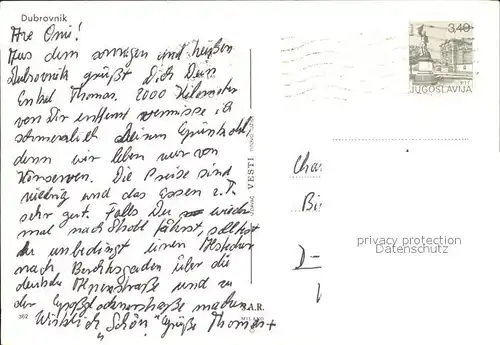 Dubrovnik
Ahoi Omi!
Aus dem sonnigen und heißen
Dubrovnik grüßt Dich Dein
Enkel Thomas. 2000 Kilometer
von Dir entfernt vermisse ich
schmerzlich Deinen Grünkohl,
denn wir leben nur von
Konserven. Die Preise sind
niedrig und das Essen z.T.
sehr gut. Falls Du wieder
mal nach fährst, solltest
du unbedingt einen Abstecher
nach Berchtesgaden über die
deutsche Alpenstraße und zu
der Großglocknerstraße machen.
Wirklich "Schön". Grüße Thomas
362
VESTI
S.A.R.
MILANO
3,40
JUGOSLAVIJA
Cha
Bi
D-
privacy protection
Datenschutz